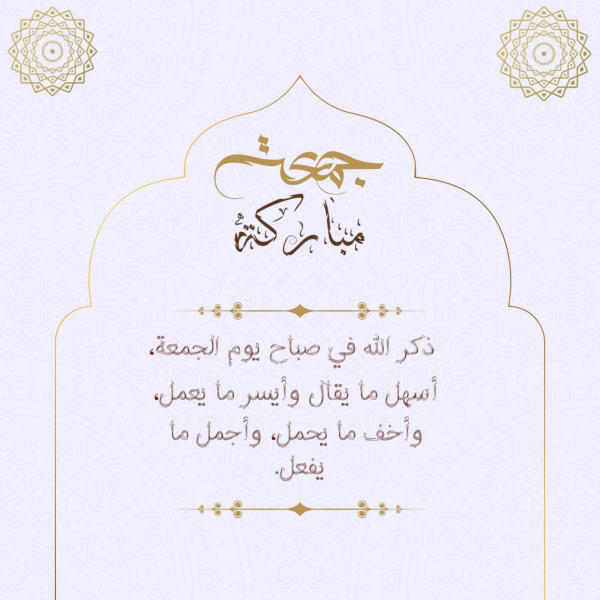 جمعة
مباركة
ذكر الله في صباح يوم الجمعة،
أسهل ما يقال وأيسر ما يعمل،
وأخف ما يحمل، وأجمل ما
يفعل.